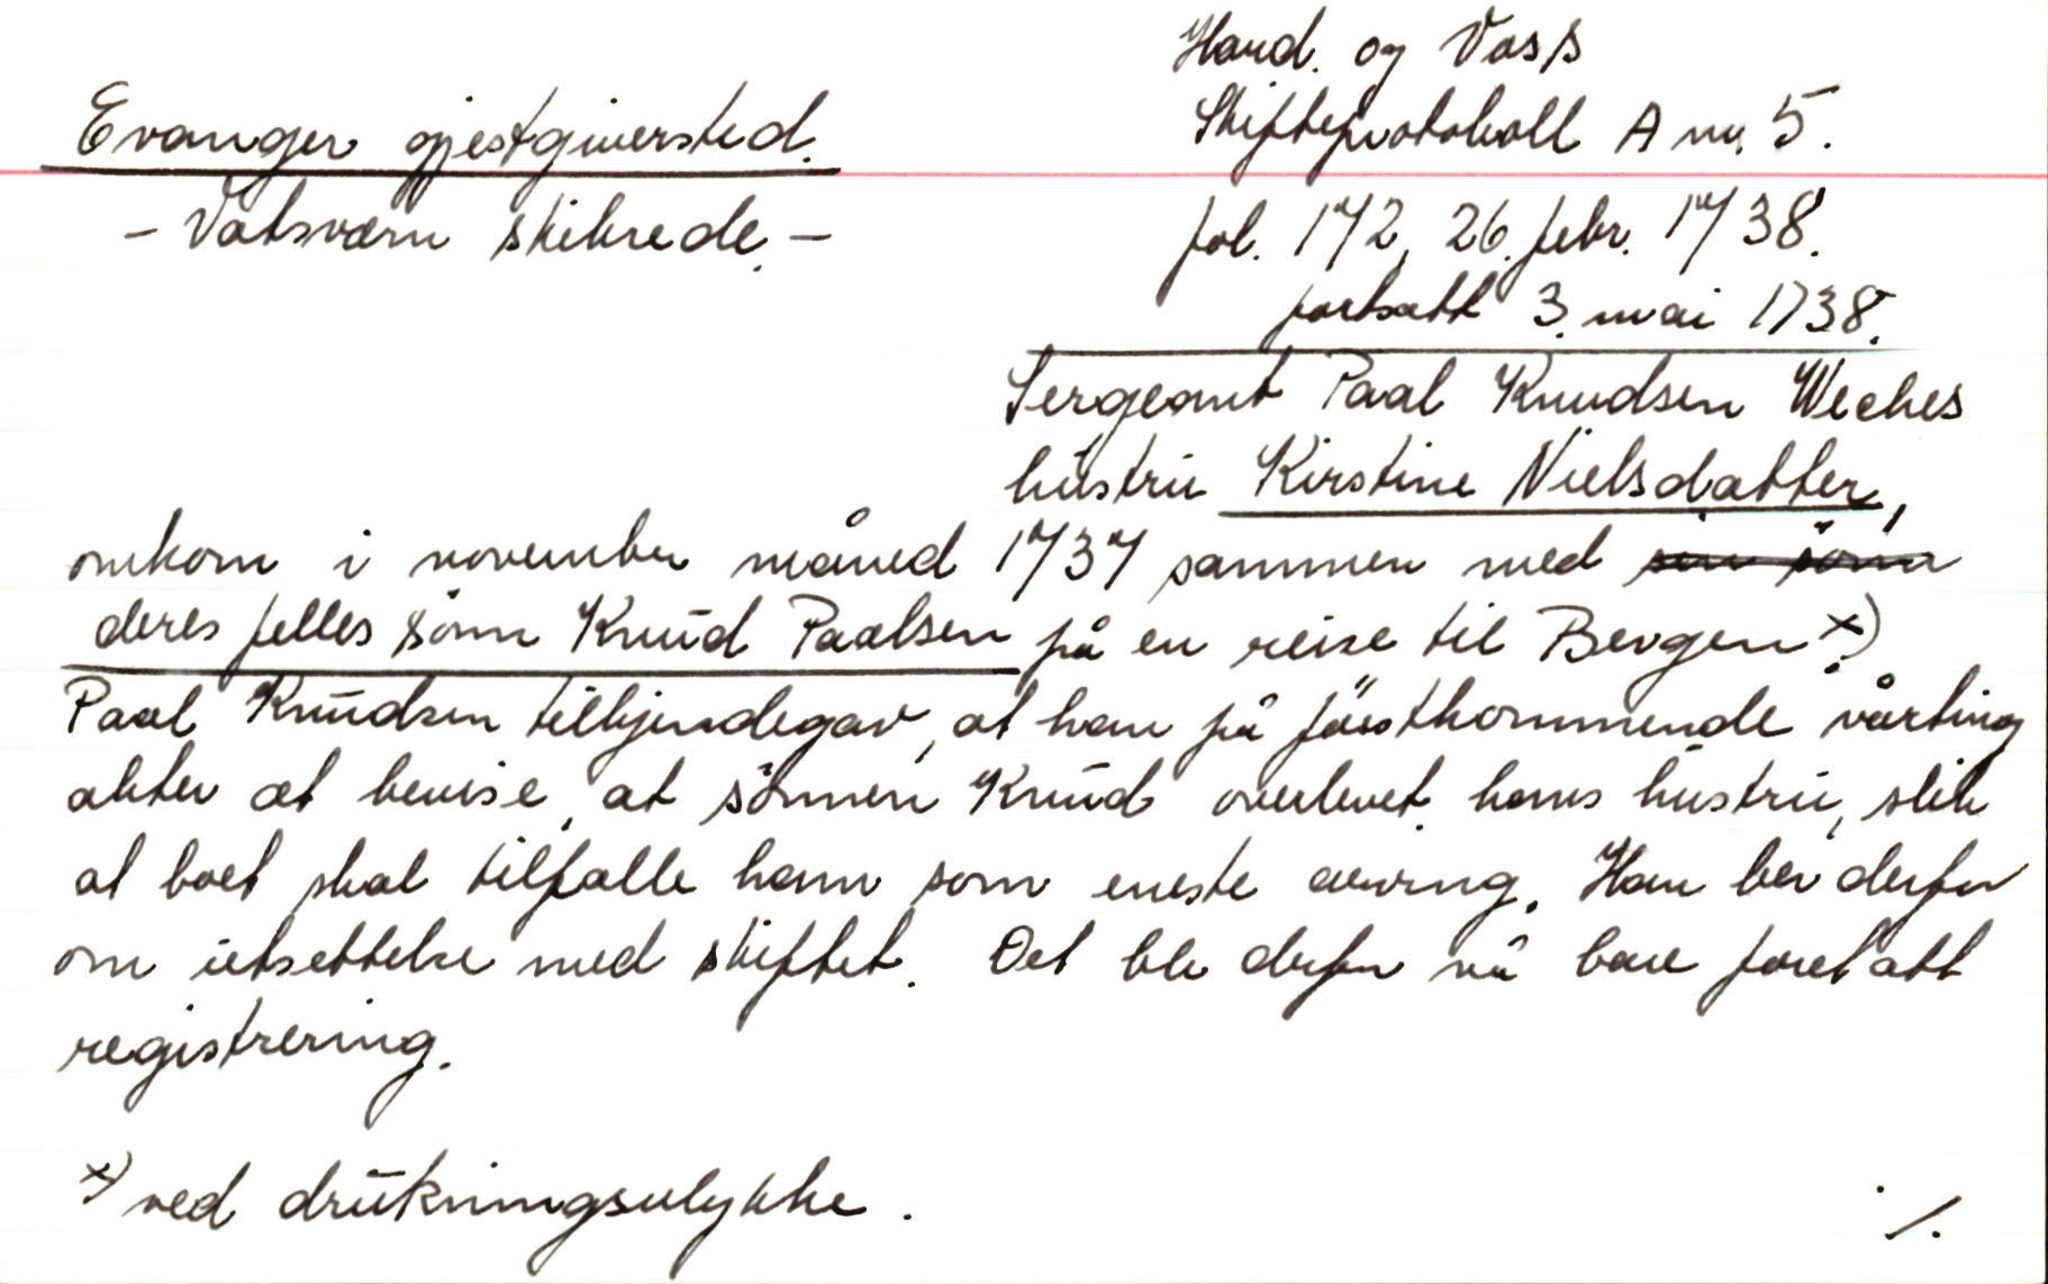 Hard. og Voss
Evanger gjestgiversted.
Skifteprotokoll A nr. 5.
- Vatsværn skibrede. -
fol. 172, 26. febr. 1738.
fortsatt 3. mai 1738.
Sergeant Paal Knudsen Weekes
hustru Kirstine Nielsdatter,
omkom i november måned 1737 sammen med sin sønn
deres felles sønn Knud Paalsen på en reise til Bergen x).
Paal Knudsen tilkjendegav, at han på førstkommende vårting
akter at bevise, at sønnen Knud overlevet hans hustru, slik
at boet skal tilfalle ham som eneste arving. Han ber derfor
om utsettelse med skiftet. Det ble derfor nå bare foretatt
registrering.
x) ved drukningsulykke.
./.